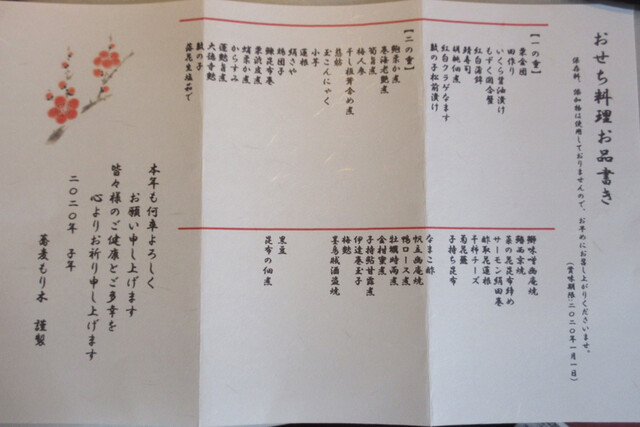 おせち料理お品書き
保存料、添加物は使用しておりませんので、お早めにお召し上がりくださいませ。
(賞味期限二〇二〇年一月一日)
【一の重】
栗金団
田作り
いくら醤油漬け
もずく
紅白蒲鉾
鯖寿司
胡桃佃煮
紅白クラゲなます
数の子松前漬け
鰤味噌幽庵焼
サーモン絹田巻
酢取花蓮根
干柿チーズ
菊花蕪
子持ち昆布
【二の重】
鮑柔か煮
巻海老艶煮
筍旨煮
梅人参
干し椎茸含め煮
慈姑
小芋
玉こんにゃく
蓮根
絹さや
鶏団子
鰊昆布巻
栗渋皮煮
蛸柔か煮
からすみ
大徳寺麩
数の子
なまこ酢
帆立幽庵焼
鴨ロース煮
牡蠣時雨煮
金柑蜜煮
子持鮎甘露煮
伊達巻玉子
梅麩
黒豆
昆布の佃煮
本年も何卒よろしく
お願い申し上げます
皆々様のご健康とご多幸を
心よりお祈り申し上げます
二〇二〇年 子年
蕎麦もり本 謹製